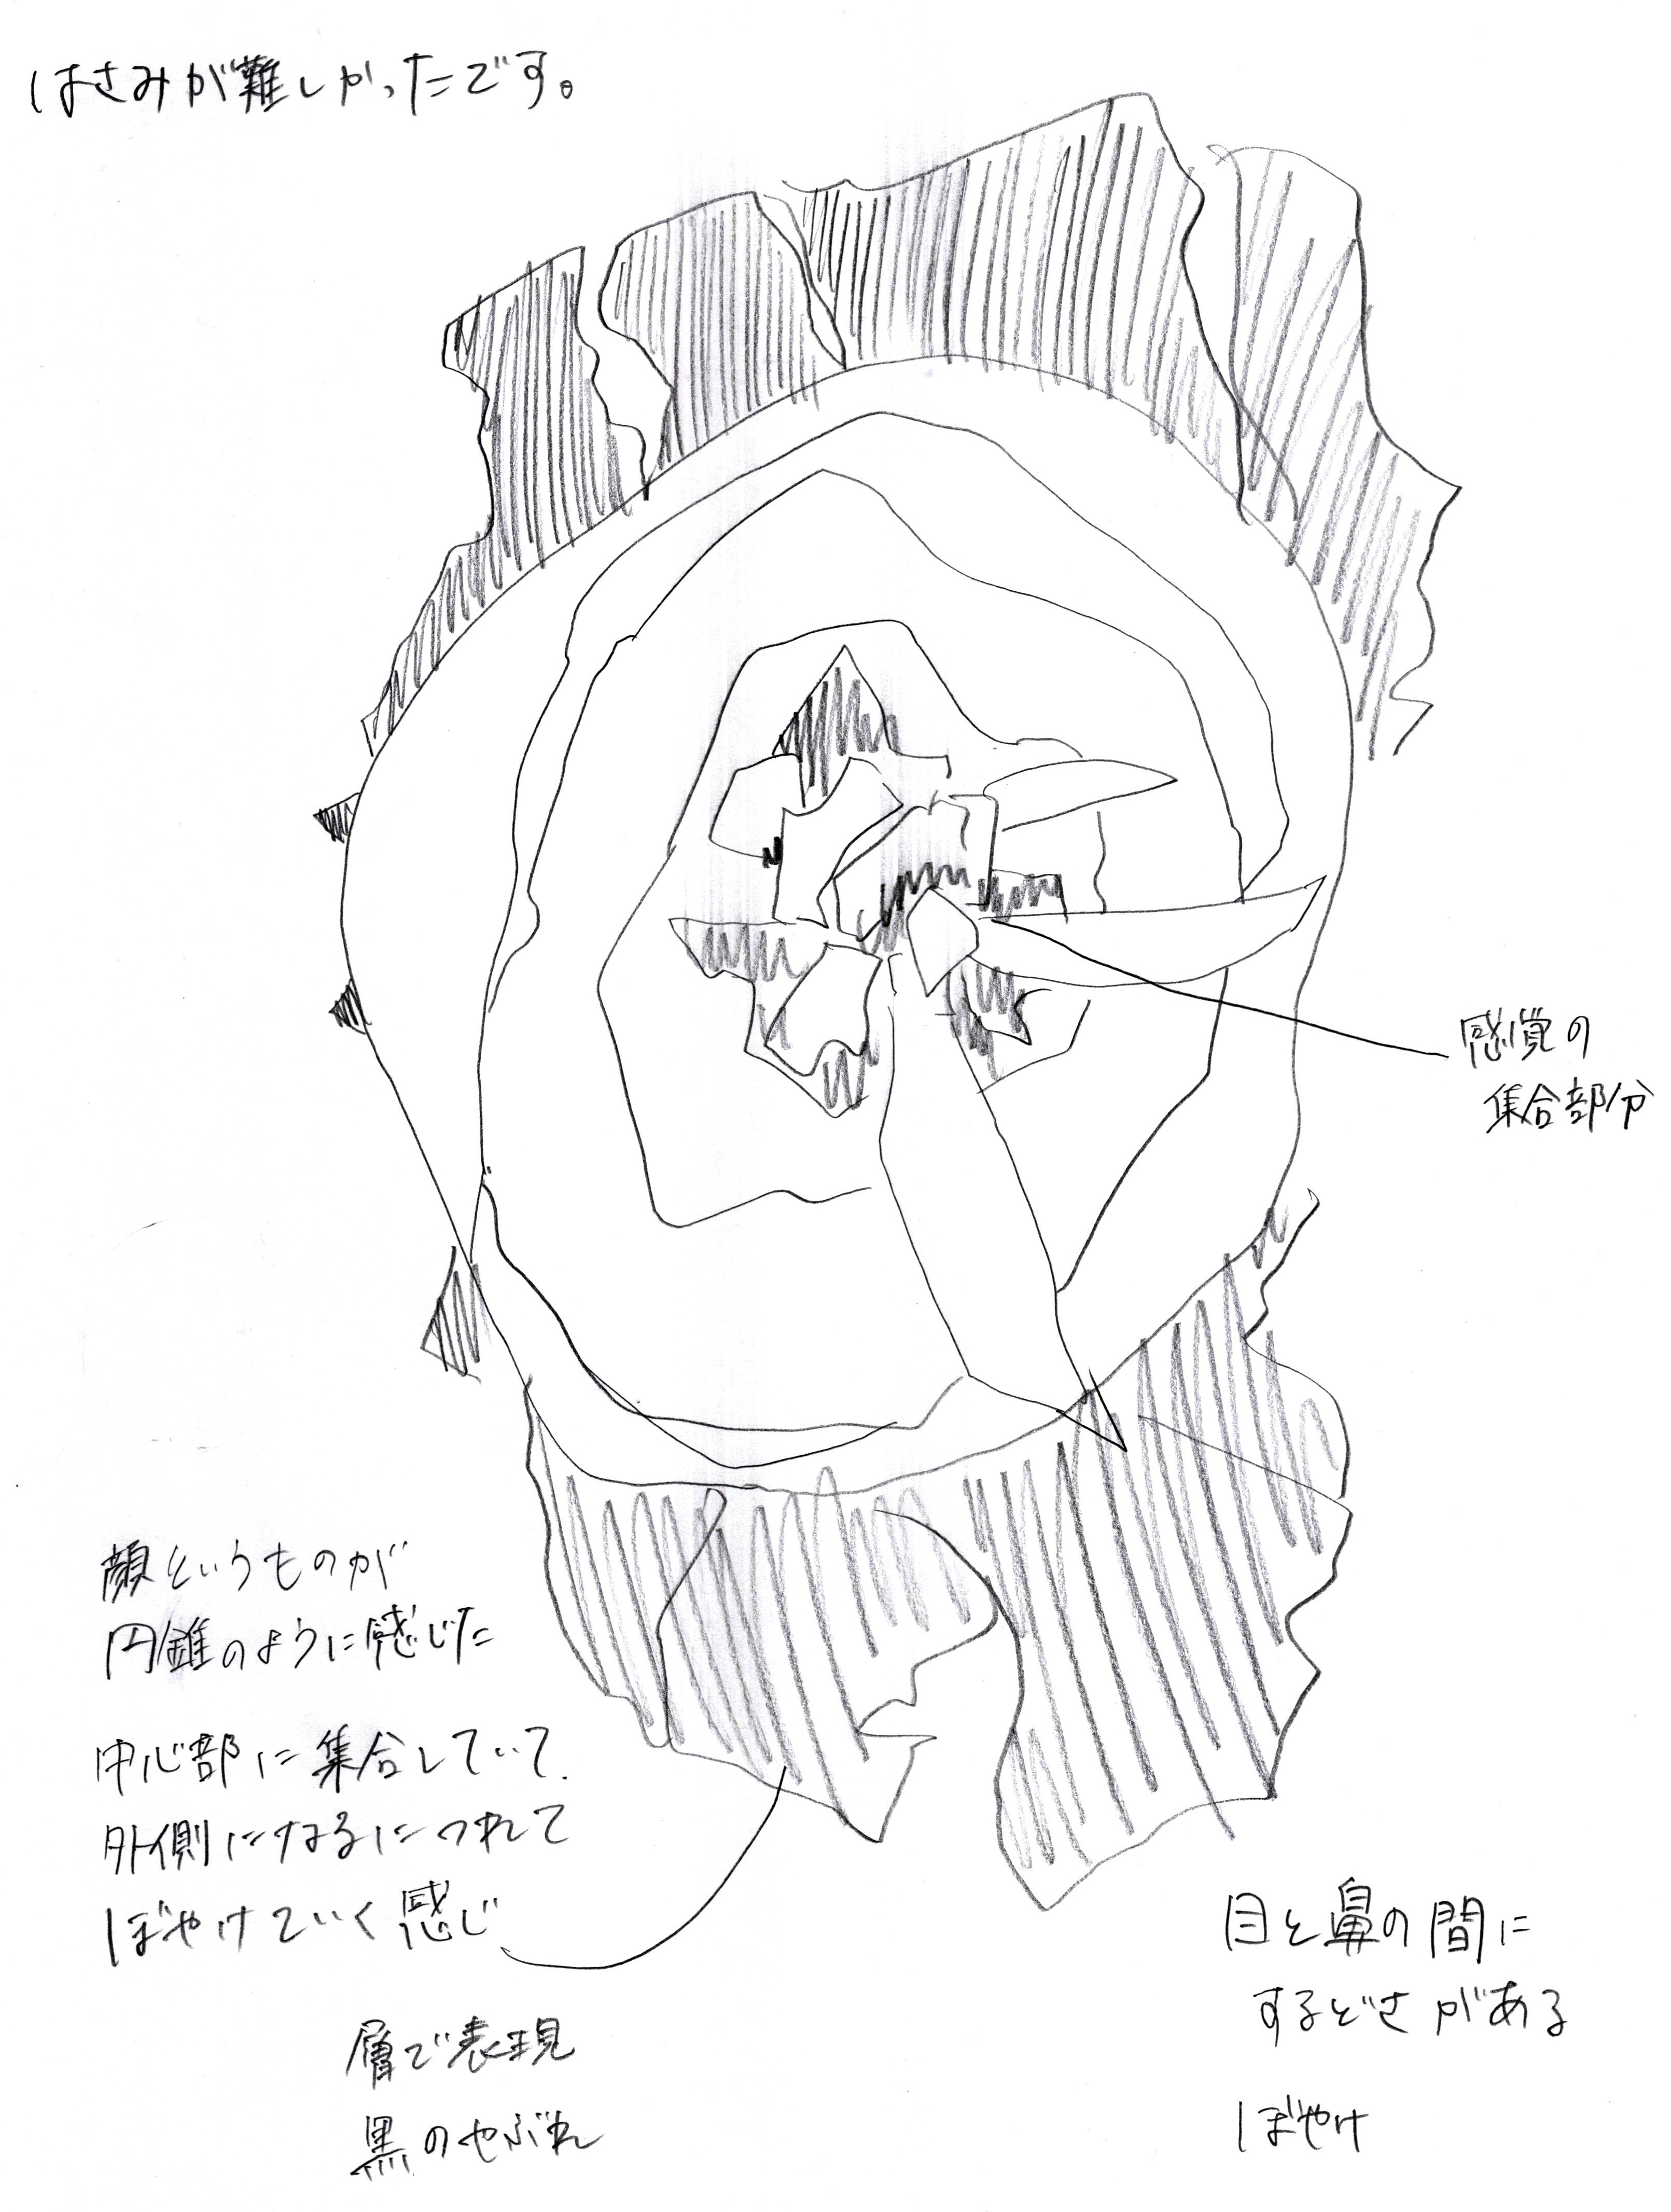 はさみが難しかったです。
感覚の
集合部分
顔というものが
円錐のように感じた
中心部に集合していて、
外側になるにつれて
ぼやけていく感じ
層で表現
黒のやぶれ
目と鼻の間に
するどさがある
ぼやけ